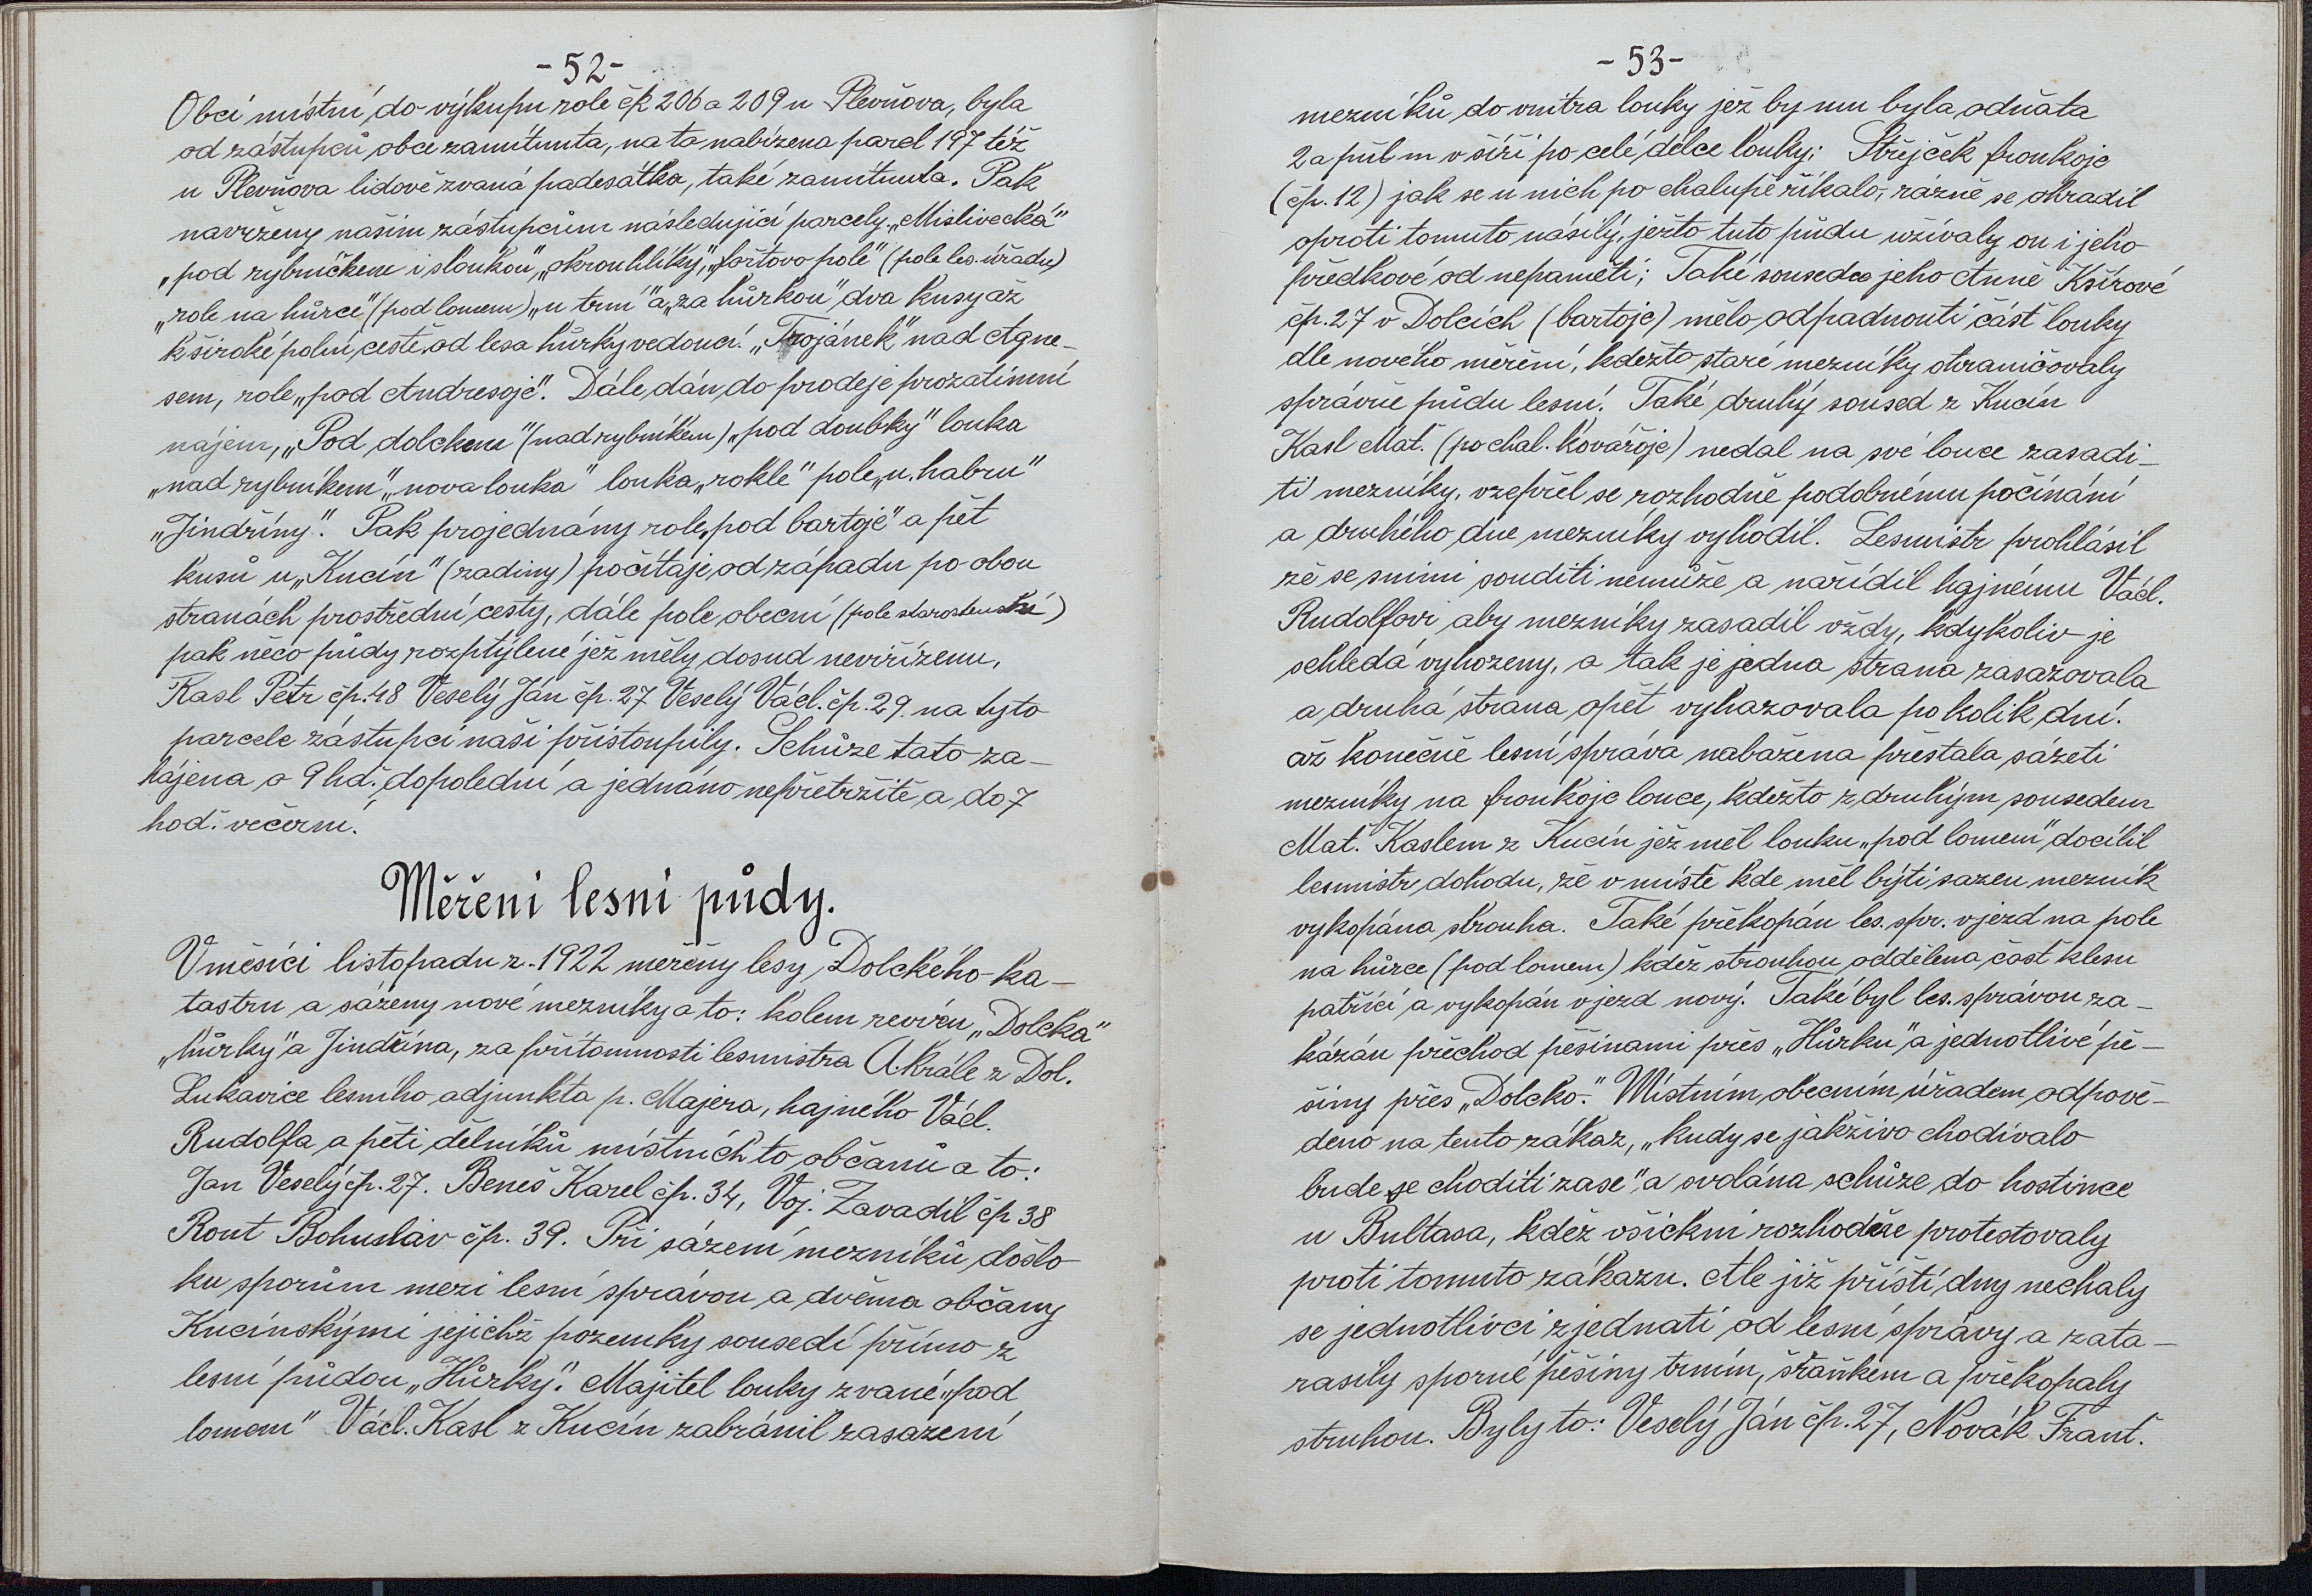 -52-
Obcí místní do výkupu role čk 206 a 209 u Plevňova, byla
od zástupců obce zamítnuta, na to nabízena parcl 197 též
u Plevňova lidově zvaná padesátka, také zamítnuta. Pak
navrženy našim zástupcům následující parcely „Mislivecká"
„pod rybníčkem i sloukou", „okrouhlíky", „fořtovo pole" (pole les. úřadu)
„role na hůrce" (pod lomem) „u trní" a „za hůrkou" dva kusy až
k široké polní cestě od lesa hůrky vedoucí. „Trojánek" nad Agne-
sem, role „pod Andresojc". Dále dán do prodeje prozatimní
nájem, „Pod dolckem" (nad rybníkem) „pod doubky" louka
„nad rybníkem" „nova louka" louka „rokle" pole „u habru"
„Jindřiny". Pak projednány role „pod bartojc" a pět
kusů u „Kucín" (zadiny) počítaje od západu po obou
stranách prostřední cesty, dále pole obecní (pole starostenské)
pak něco půdy rozptýlené jež měly dosud neviřízenu,
Kasl Petr čp. 48 Veselý Ján čp. 27 Veselý Václ. čp. 29. na tyto
parcele zástupci naši přistoupily. Schůze tato za-
hájena o 9 hd. dopolední a jednáno nepřetržitě a do 7
hod. večerní.
Měřeni lesni půdy.
V měsíci listopadu r. 1922 měřěny lesy Dolckého ka-
tastru a sázeny nové mezníky a to: kolem revíru „Dolcka"
„hůrky" a Jindřina, za přítomnosti lesmistra A. Krále z Dol.
Lukavice lesního adjunkta p. Majera, hajného Václ.
Rudolfa a pěti dělníků místních to občanů a to:
Jan Veselý čp. 27. Beneš Karel čp. 34, Voj. Zavadil čp 38
Rout Bohuslav čp. 39. Při sázení mezníků došlo
ku sporům mezi lesní správou a dvěma občany
Kucínskými jejichž pozemky sousedí přímo z
lesní půdou „Hůrky". Majitel louky zvané „pod
lomem" Václ. Kasl z Kucín zabránil zasazení
-53-
mezníků do vnitra louky jež by mu byla odňata
2 a půl m v šíři po celé délce louky; Střejček froukojc
(čp. 12) jak se u nich po chalupě říkalo, rázně se ohradil
oproti tomuto násilý, ježto tuto půdu užívaly on i jeho
předkové od nepaměti; Také sousedce jeho Anně Kšírové
čp. 27 v Dolcích (bartojc) mělo odpadnouti část louky
dle nového měření, kdežto staré mezníky ohraničovaly
správně půdu lesní. Také druhý soused z Kucín
Kasl Mat. (po chal. kovářojc) nedal na své louce zasadi-
ti mezníky, vzepřel se rozhodně podobnému počínání
a druhého dne mezníky vyhodil. Lesmistr prohlásil
žě se snimi souditi nemůže a nařídil hajnému Václ.
Rudolfovi aby mezníky zasadil vždy, kdykoliv je
schledá vyhozeny, a tak je jedna strana zasazovala
a druhá strana opět vyhazovala po kolik dní.
až konečně lesní správa nabažena přestala sázeti
mezníky na froukojc louce, kdežto z druhým sousedem
Mat. Kaslem z Kucín jěž měl louku „pod lomem" docílil
lesmistr dohodu, že v místě kde měl býti sazen mezník
vykopána strouha. Také překopán les. spr. vjezd na pole
na hůrce (pod lomem) kděž strouhou oddělena část klesu
patřící a vykopán vjezd nový. Také byl les. správou za-
kázán přechod pěšinami přes „Hůrku" a jednotlivé pě-
šiny přes „Dolcko." Místním obecním úřadem odpově-
deno na tento zákaz, „kudy se jakživo chodívalo
bude se choditi zase" a svolána schůze do hostince
u Bultasa, kděž všickni rozhodně protestovaly
proti tomuto zákazu. Ale již příští dny nechaly
se jednotlivci zjednati od lesní správy a zata-
rasily sporné pěšiny trním, šraňkem a překopaly
struhou. Byly to: Veselý Ján čp. 27, Novák Frant.